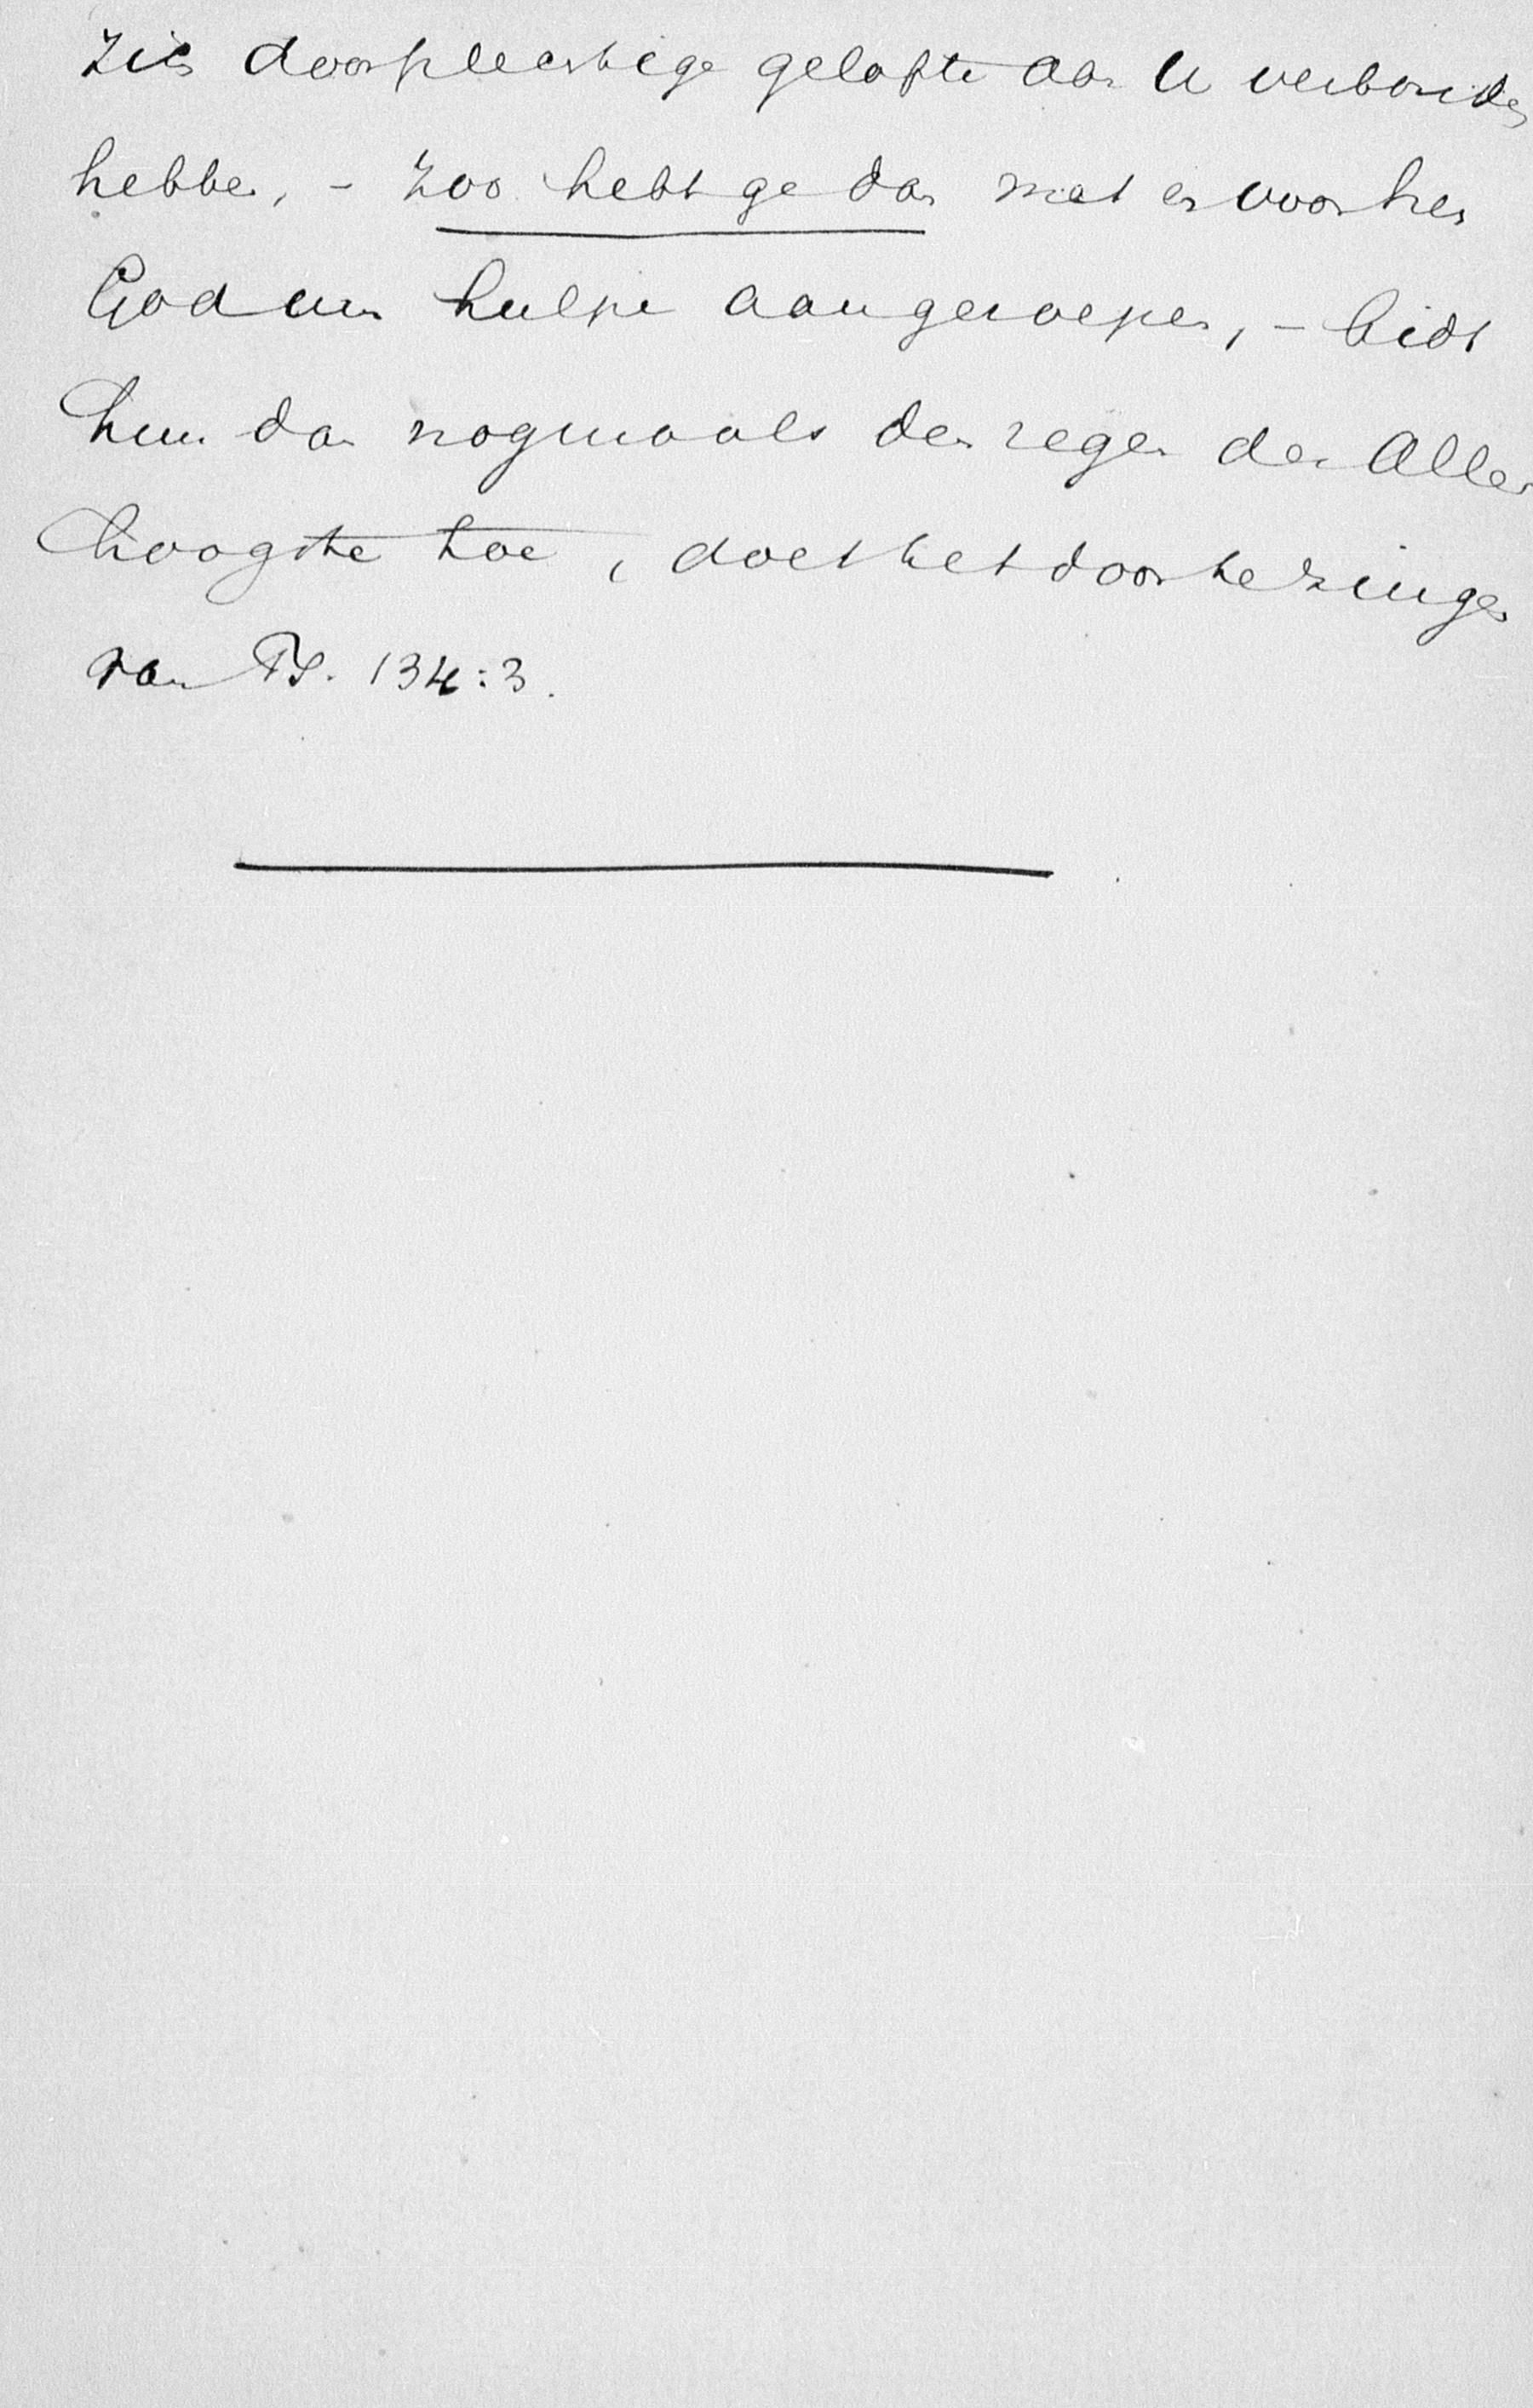 zich door plechtige gelofte aan U verbonden
hebben, - zoo hebt ge dan met en voor hen
God um hulpe aangeroepen, - bidt
hun dan nogmaals den zegen des Aller
hoogste toe, doet het door te zingen
van Ps. 134:3.